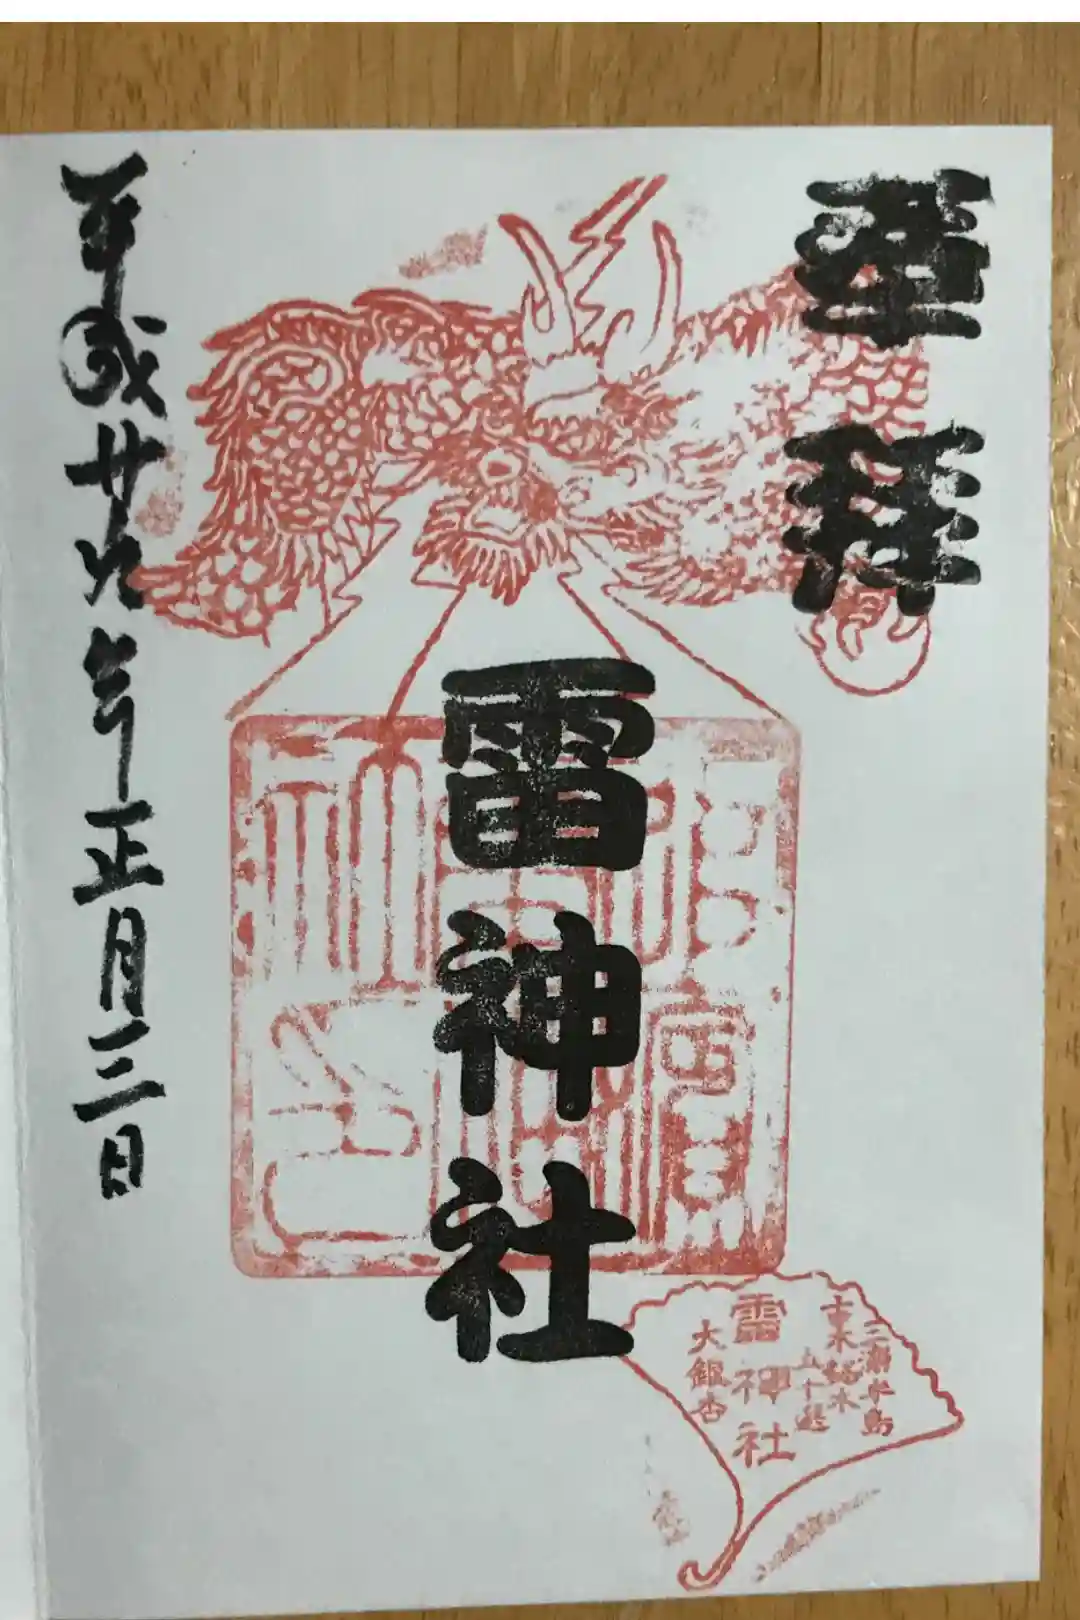 奉拝
雷神社
平成廿九年正月三日
三浦半島
古木銘木
五十選
雷神社
大銀杏